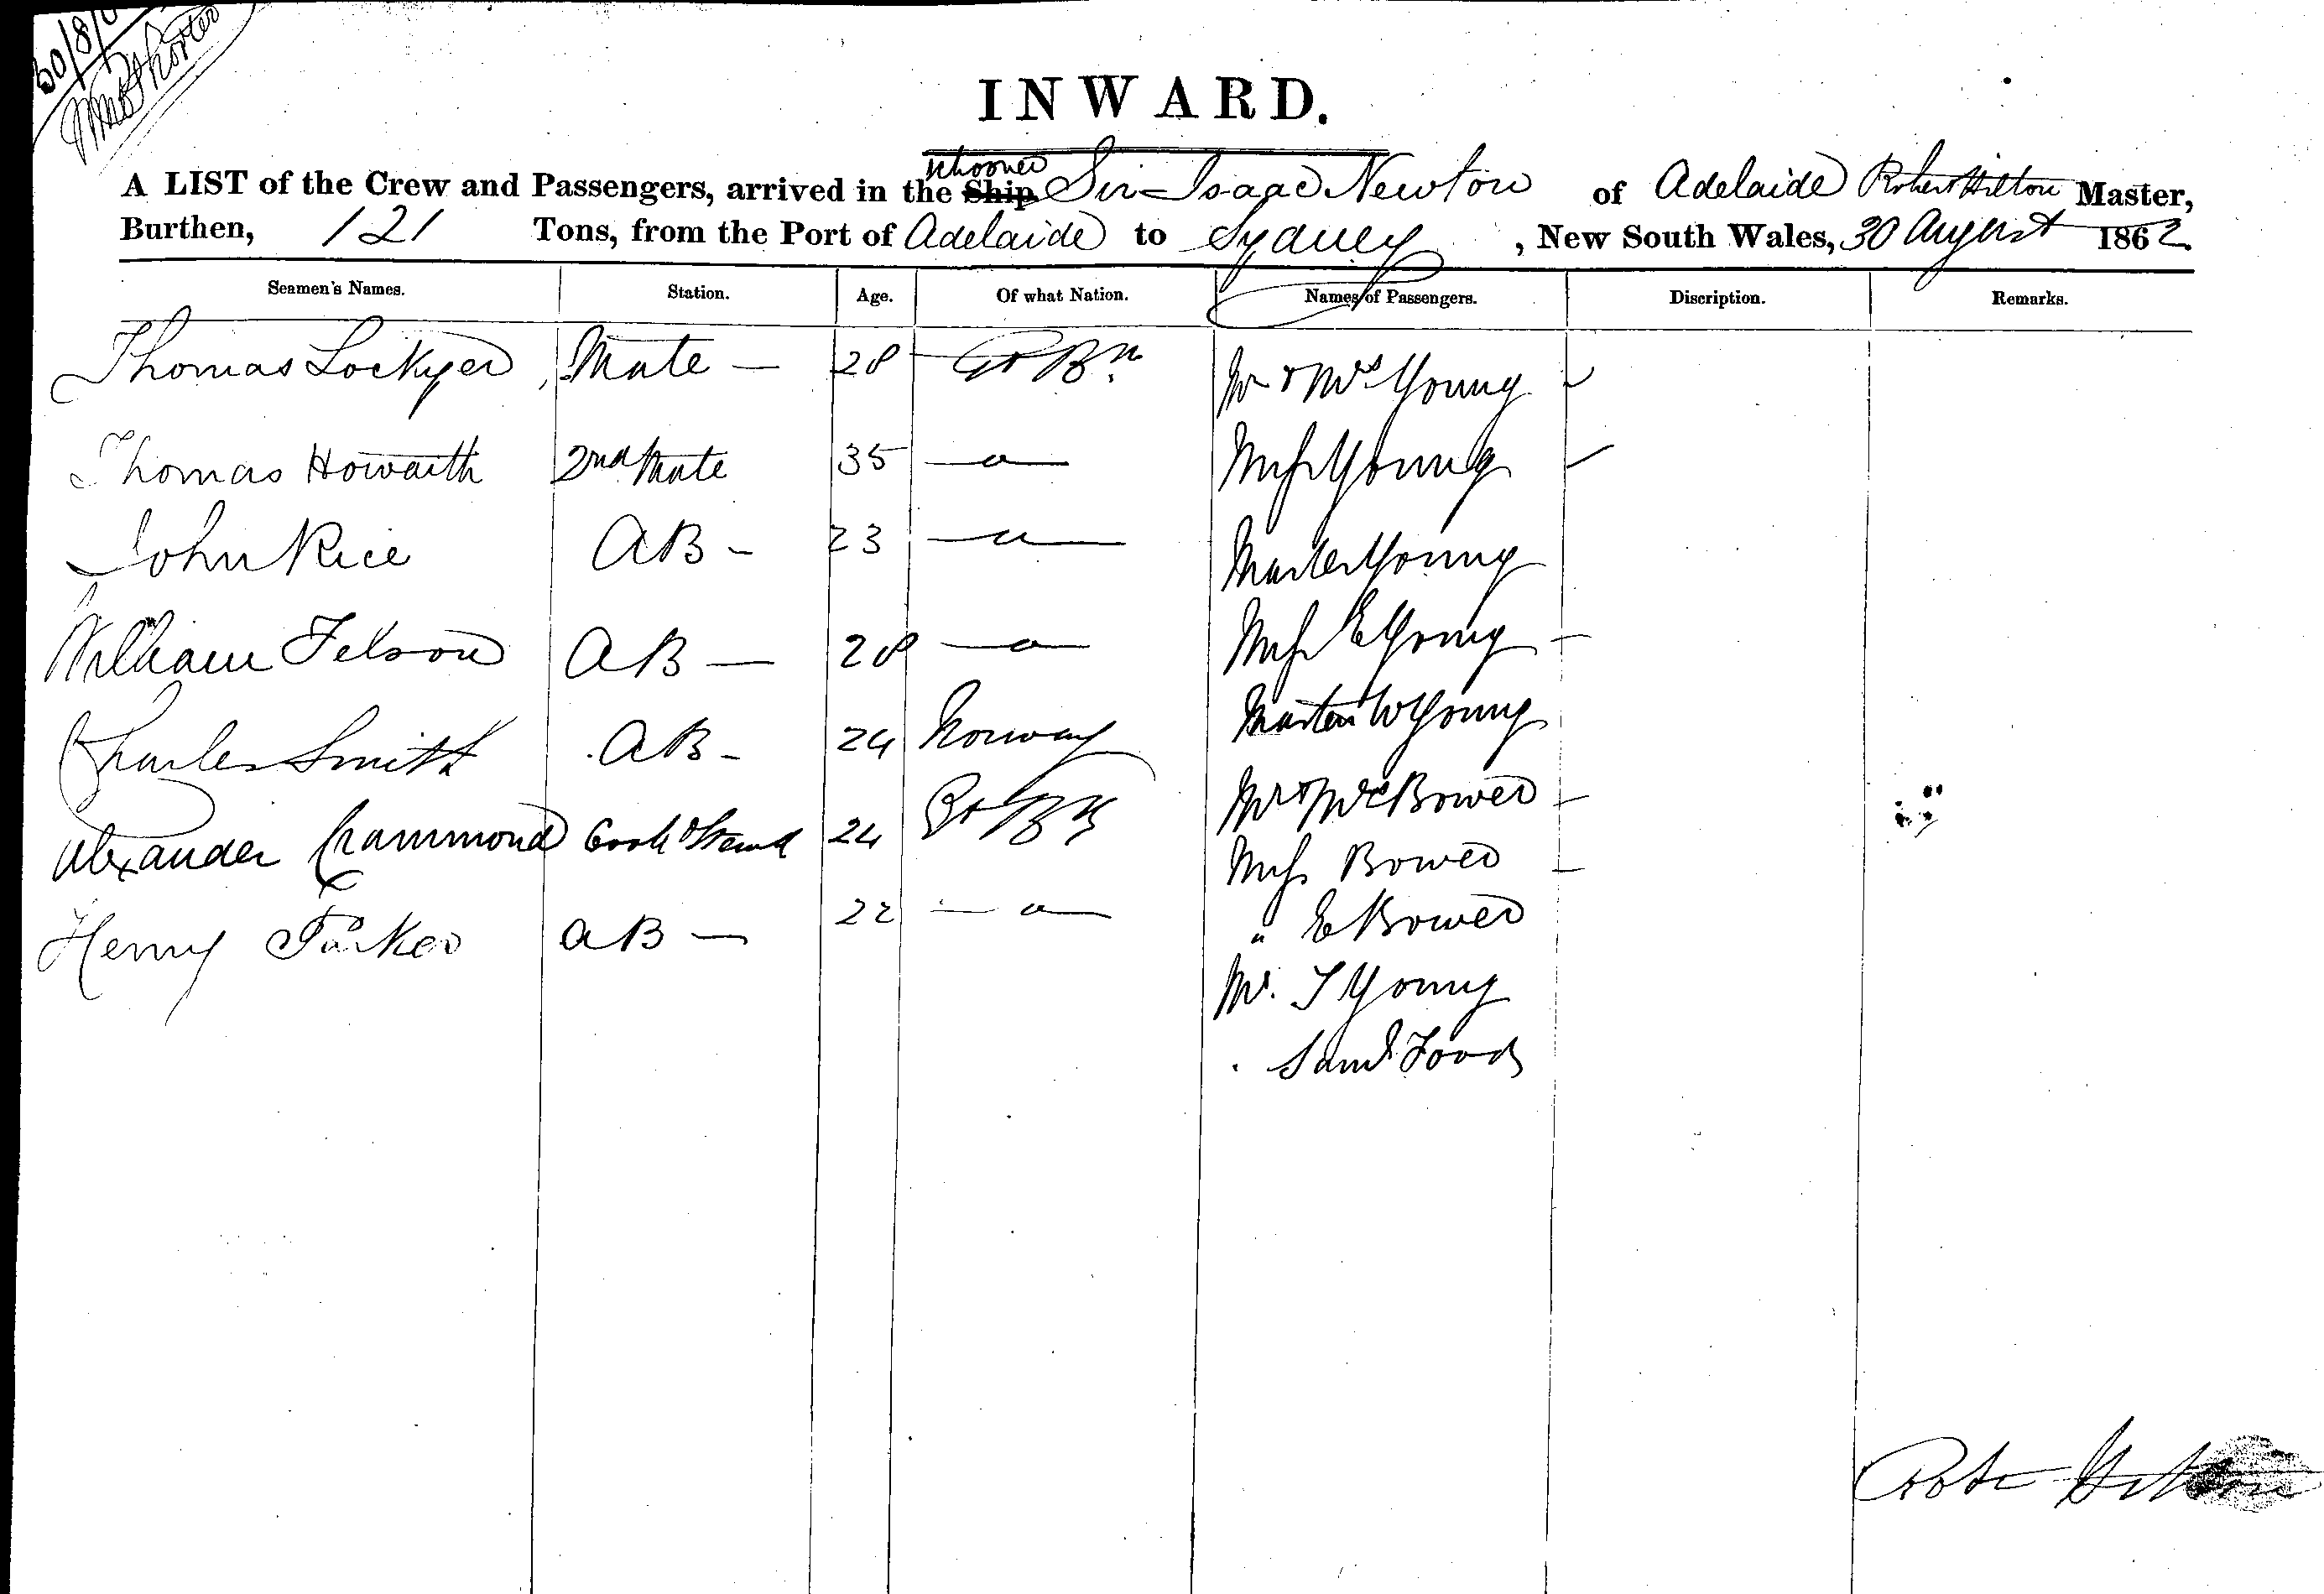 30/8/
INWARD.
schooner
A LIST of the Crew and Passengers, arrived in the Ship Sir Isaac Newton of Adelaide Robert Hilton Master,
Burthen, 121 Tons, from the Port of Adelaide to Sydney, New South Wales, 30 August 1862
Seamen's Names. Station. Age. Of what Nation. Names of Passengers. Discription. Remarks.
Thomas Lockyer Mate — 28 Gt Bn. Mr & Mrs Young
Thomas Howarth 2nd Mate 35 — " — Miss Young
John Rice AB — 23 — " — Master Young
William AB — 28 — " — Miss E Young
Charles Smith AB — 24 Norway Master W Young
Alexander Crammond Cook & Steward 24 Mr & Mrs Bower
Miss Bower
Henry Parker AB — 22 — " — " E Bower
Mr. T Young
Saml
Robt Hilton